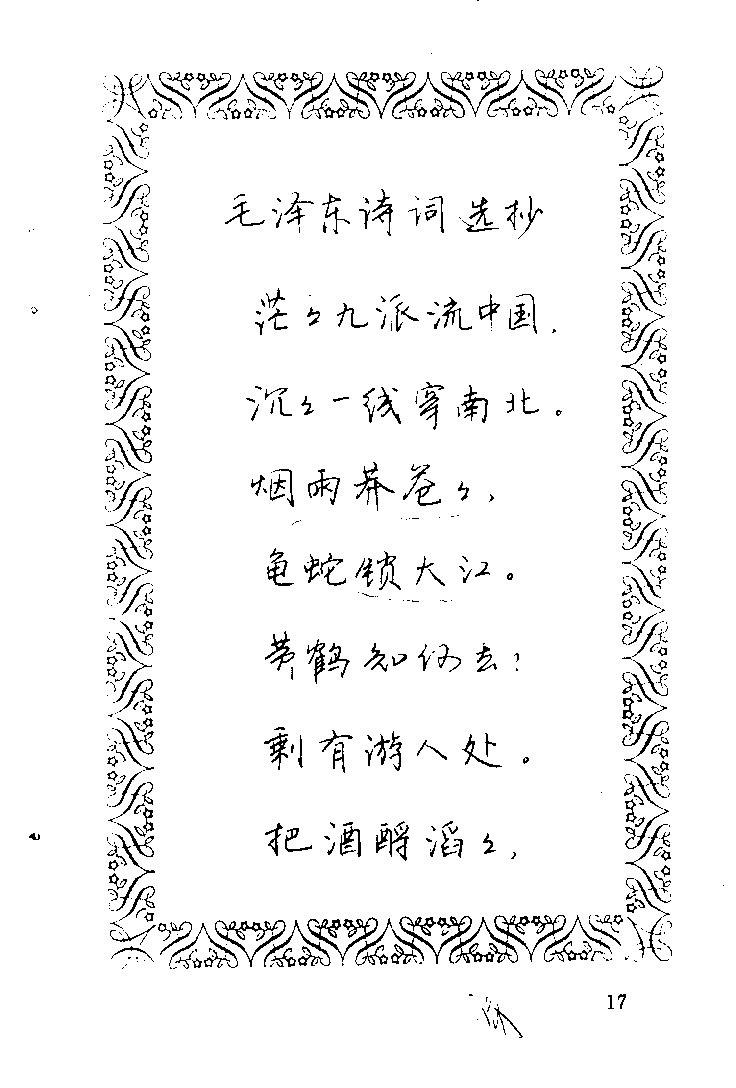 毛泽东诗词选抄
茫々九派流中国.
沉々一线穿南北。
烟雨莽苍々,
龟蛇锁大江。
黄鹤知何去?
剩有游人处。
把酒酹滔々,
17